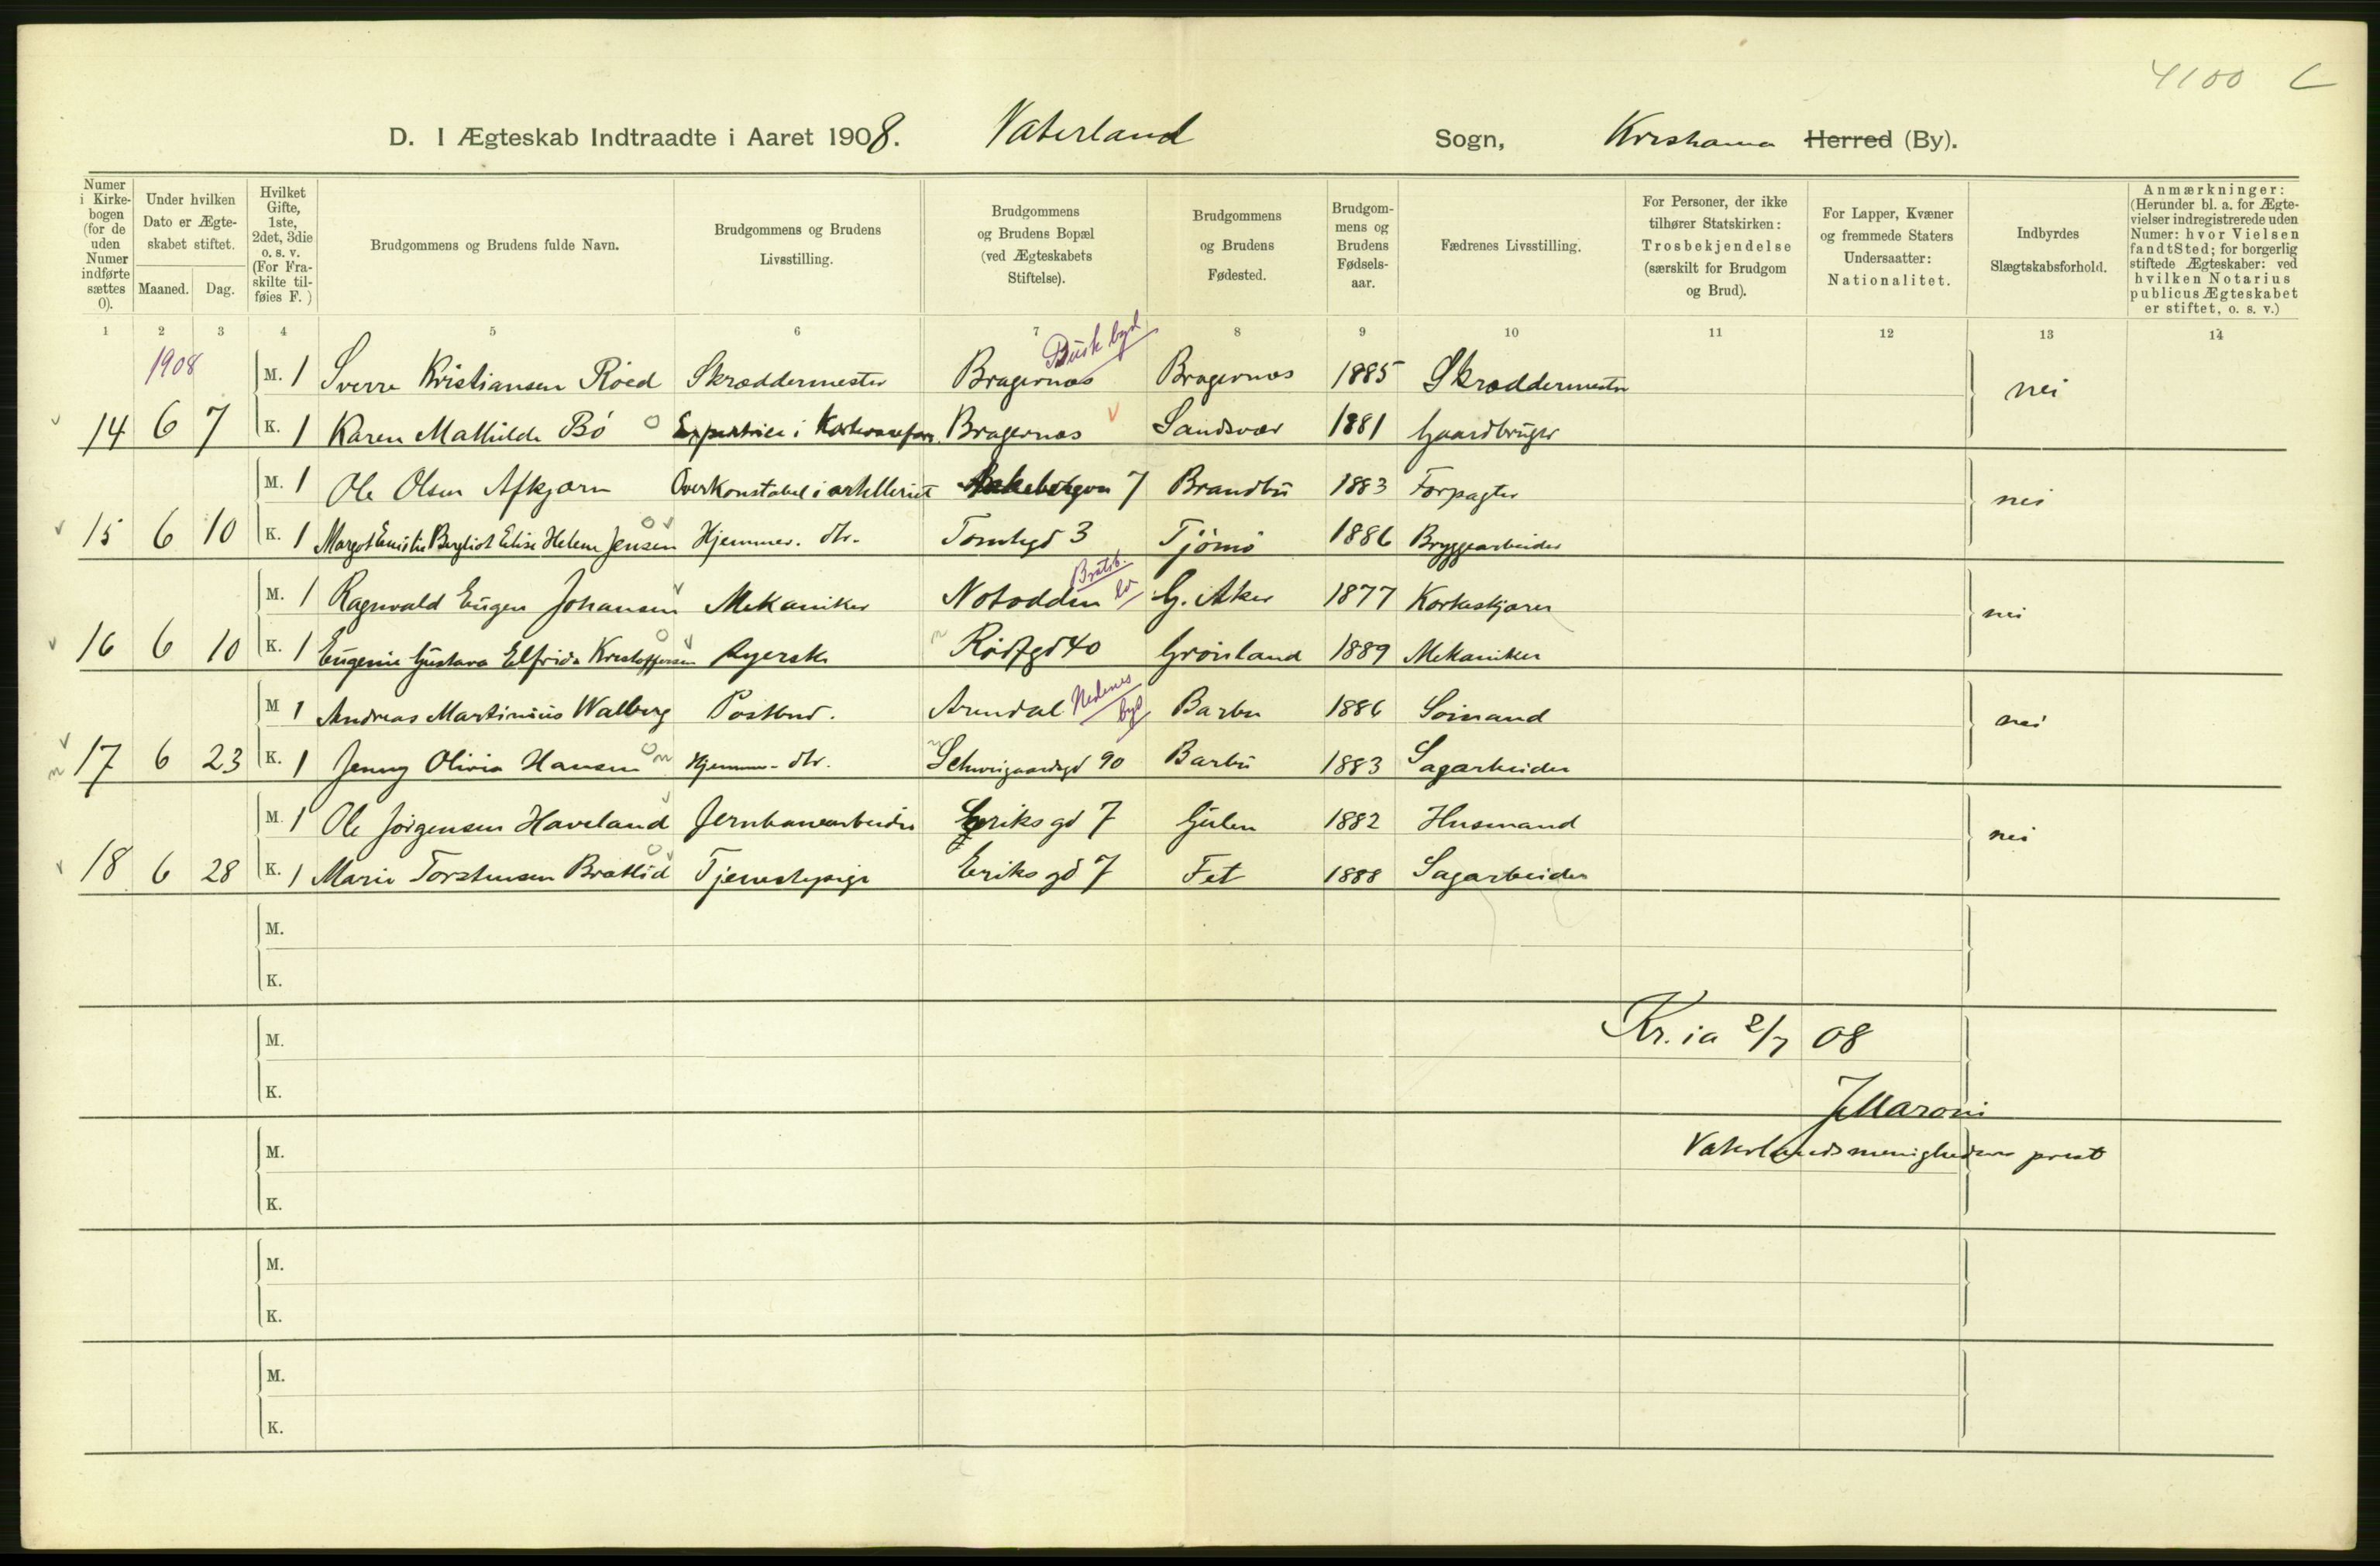 4100 C
D. I Ægteskab Indtraadte i Aaret 1908. Vaterland Sogn, Kristiania Herred (By).
Numer i Kirkebogen (for de uden Numer indførte sættes 0).
Under hvilken Dato er Ægteskabet stiftet.
Maaned. Dag.
Hvilket Gifte, 1ste, 2det, 3die o. s. v. (For Fraskilte tilføies F.)
Brudgommens og Brudens fulde Navn.
Brudgommens og Brudens Livsstilling.
Brudgommens og Brudens Bopæl (ved Ægteskabets Stiftelse).
Brudgommens og Brudens Fødested.
Brudgommens og Brudens Fødselsaar.
Fædrenes Livsstilling.
For Personer, der ikke tilhører Statskirken: Trosbekjendelse (særskilt for Brudgom og Brud).
For Lapper, Kvæner og fremmede Staters Undersaatter: Nationalitet.
Indbyrdes Slægtskabsforhold.
Anmærkninger: (Herunder bl. a. for Ægtevielser indregistrerede uden Numer: hvor Vielsen fandt Sted; for borgerlig stiftede Ægteskaber: ved hvilken Notarius publicus Ægteskabet er stiftet, o. s. v.)
1 2 3 4 5 6 7 8 9 10 11 12 13 14
1908 M. 1 Sverre Kristiansen Röed Skræddermester Bragernæs Busk byd Bragernæs 1885 Skræddermester nei
14 6 7 K. 1 Karen Mathilde Bö Bragernæs Sandsvær 1881 Gaardbruger
M. 1 Ole Olsen Afkjærn Overkonstabel i artilleriet 7 Brandbu 1883 Forpagter nei
15 6 10 K. 1 Margot Emilie Bergliot Elise Helene Jensen Hjemmev. dtr. Tomtegd 3 Tjömö 1886 Bryggearbeider
M. 1 Ragnvald Eugen Johansen Mekaniker Notodden Bratsb. G. Aker 1877 Korkeskjærer nei
16 6 10 K. 1 Eugenie Gustava Elfrida Kristoffersen Syerske Rödfgd 40 Grönland 1889 Mekaniker
M 1 Andreas Martinius Walberg Postbud. Arendal Nedenes byd Barbu 1886 Sömand nei
17 6 23 K. 1 Jenny Olivia Hansen Hjemmev. dtr. Schweigaardsgd 90 Barbu 1883 Sagarbeider
M. 1 Ole Jörgensen Haveland Jernbanearbeider Eriks gd 7 Gulen 1882 Husmand nei
18 6 28 K. 1 Marie Torstensen Bratlid Tjenestepige Eriks gd 7 Fet 1888 Sagarbeider
M.
K.
M. Kr.ia 2/7 08
K. J Maroni
M. Vaterlandsmenighedens prest
K.
M.
K.
M.
K.